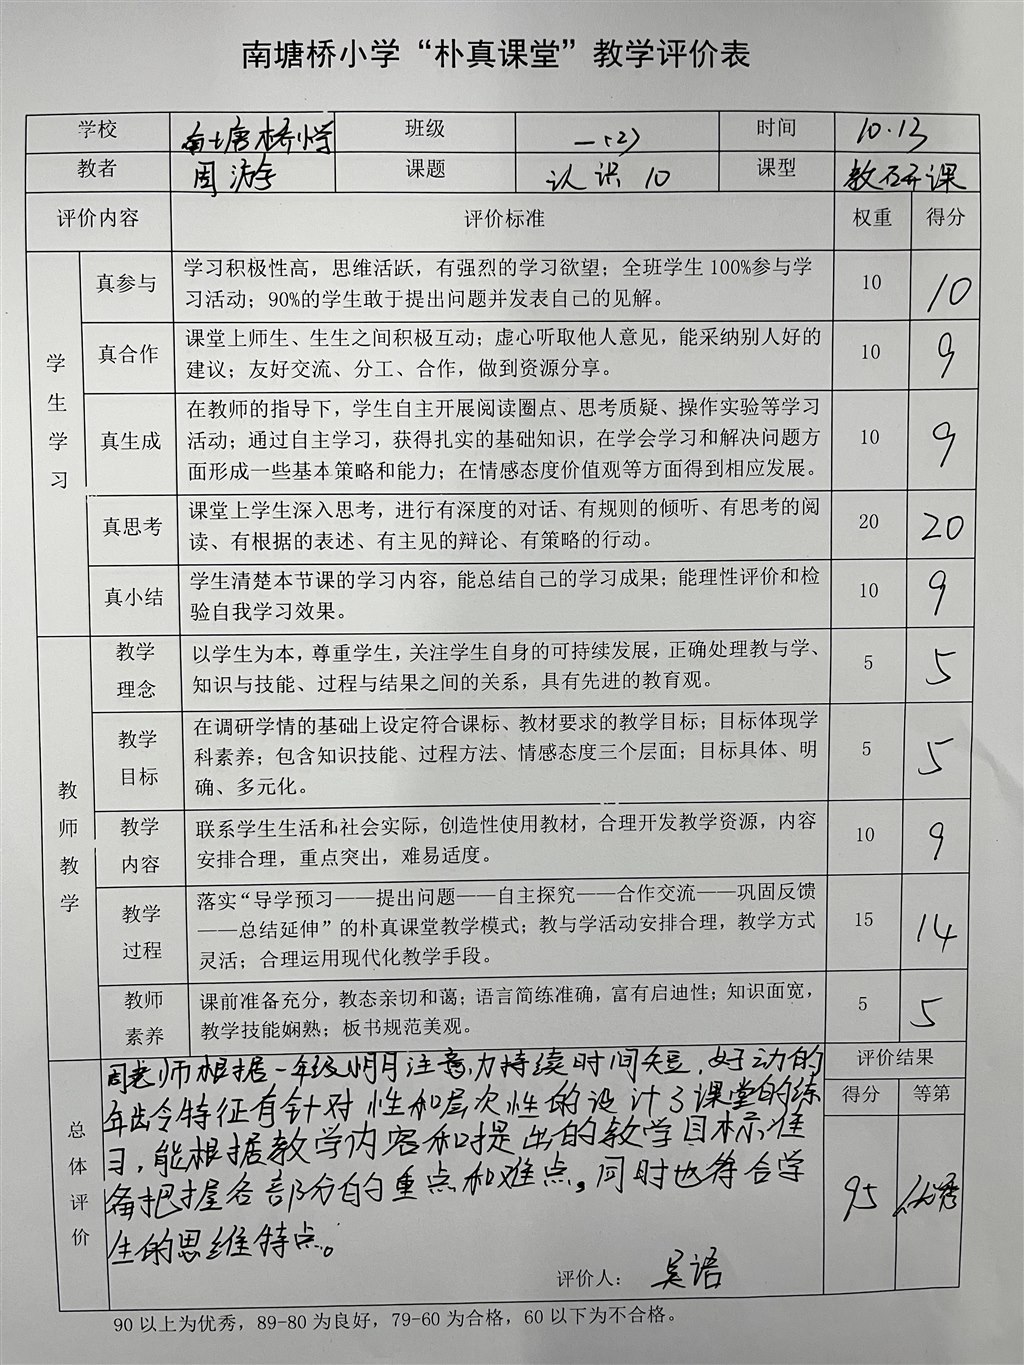 南塘桥小学“朴真课堂”教学评价表
学校 南塘桥小学 班级 一(2) 时间 10.13
教者 周 课题 认识10 课型 教研课
评价内容 评价标准 权重 得分
学生学习
真参与 学习积极性高，思维活跃，有强烈的学习欲望；全班学生100%参与学 10 10
习活动；90%的学生敢于提出问题并发表自己的见解。
真合作 课堂上师生、生生之间积极互动；虚心听取他人意见，能采纳别人好的 10 9
建议；友好交流、分工、合作，做到资源分享。
在教师的指导下，学生自主开展阅读圈点、思考质疑、操作实验等学习
真生成 活动；通过自主学习，获得扎实的基础知识，在学会学习和解决问题方 10 9
面形成一些基本策略和能力；在情感态度价值观等方面得到相应发展。
真思考 课堂上学生深入思考，进行有深度的对话、有规则的倾听、有思考的阅 20 20
读、有根据的表述、有主见的辩论、有策略的行动。
真小结 学生清楚本节课的学习内容，能总结自己的学习成果；能理性评价和检 10 9
验自我学习效果。
教师教学
教学 以学生为本，尊重学生，关注学生自身的可持续发展，正确处理教与学、 5 5
理念 知识与技能、过程与结果之间的关系，具有先进的教育观。
教学 在调研学情的基础上设定符合课标、教材要求的教学目标；目标体现学
目标 科素养；包含知识技能、过程方法、情感态度三个层面；目标具体、明 5 5
确、多元化。
教学 联系学生生活和社会实际，创造性使用教材，合理开发教学资源，内容 10 9
内容 安排合理，重点突出，难易适度。
教学 落实“导学预习——提出问题——自主探究——合作交流——巩固反馈 15 14
过程 ——总结延伸”的朴真课堂教学模式；教与学活动安排合理，教学方式
灵活；合理运用现代化教学手段。
教师 课前准备充分，教态亲切和蔼；语言简练准确，富有启迪性；知识面宽， 5 5
素养 教学技能娴熟；板书规范美观。
总体评价
周老师根据一年级明月注意力持续时间短，好动的
年龄特征有针对性和层次性的设计了课堂的练
习，能根据教学内容和提出的教学目标准
备把握各部分的重点和难点。同时也符合学
生的思维特点。
评价人： 吴语
评价结果
得分 等第
95 优秀
90以上为优秀，89-80为良好，79-60为合格，60以下为不合格。